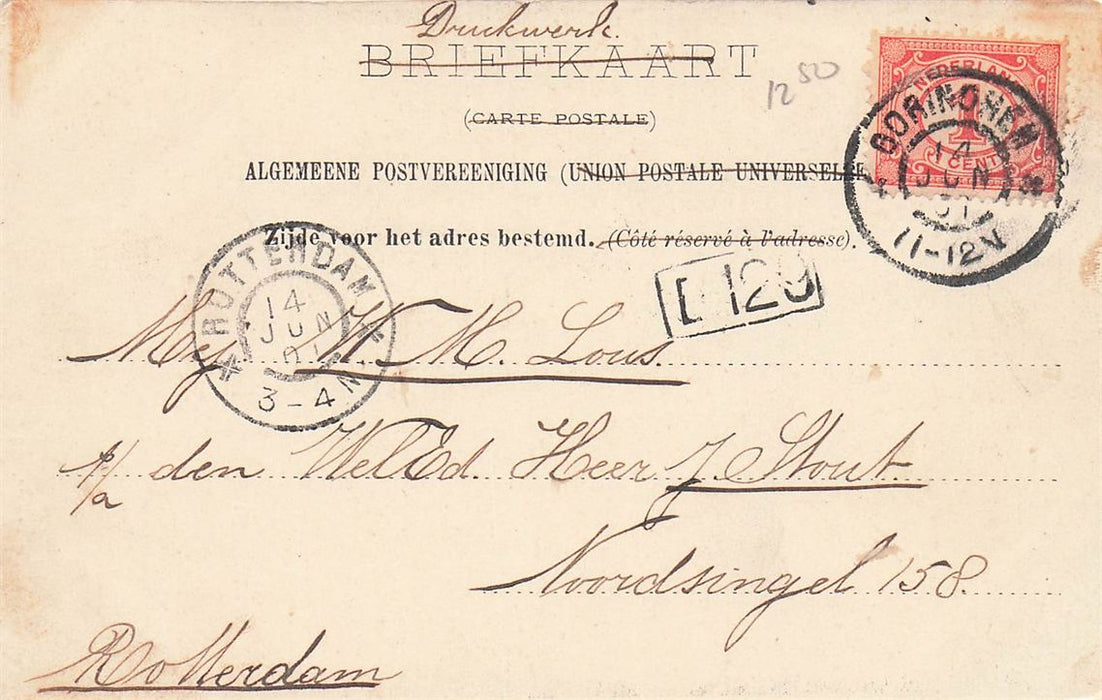 Drukwerk.
BRIEFKAART
12 50
(CARTE POSTALE)
ALGEMEENE POSTVEREENIGING (UNION POSTALE UNIVERSELLE
Zijde voor het adres bestemd. (Côté réservé à l'adresse).
NEDERLAND
1
CENT
GORINCHEM
14
JUN
01
11-12N
ROTTERDAM
14
JUN
01
3-4N
129
Mej. M. Lous
p/a den WelEd. Heer J. Stout
Noordsingel 158.
Rotterdam